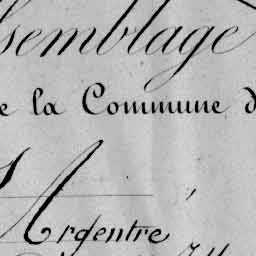 ssemblage
e la Commune d
Argentré